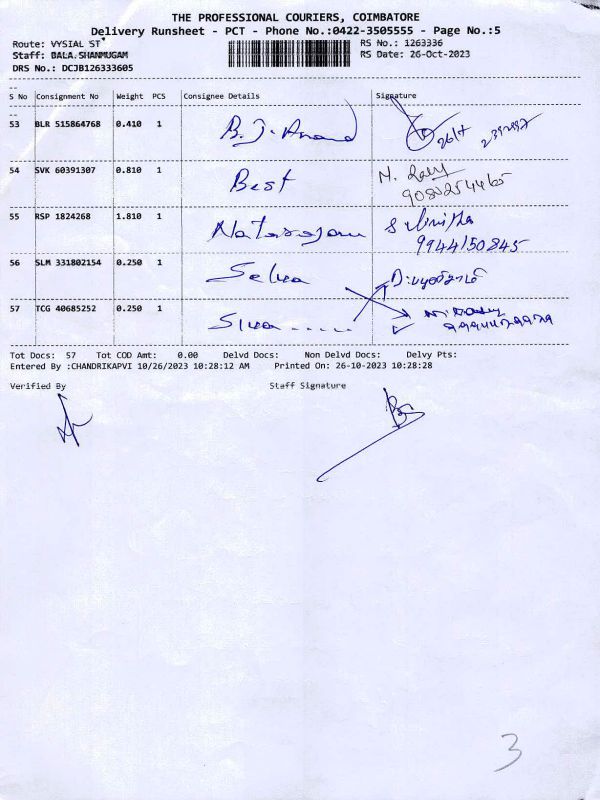 THE PROFESSIONAL COURIERS, COIMBATORE
Delivery Runsheet - PCT - Phone No.:0422-3505555 - Page No.:5
Route: VYSIAL ST RS No.: 1263336
Staff: BALA.SHANMUGAM RS Date: 26-Oct-2023
DRS No.: DCJB126333605
S No Consignment No Weight PCS Consignee Details Signature
53 BLR 515864768 0.410 1 B.J. Anand 26/7
54 SVK 60391307 0.810 1 Best
55 RSP 1824268 1.810 1 Natarajan 9944150845
56 SLM 331802154 0.250 1 Selva
57 TCG 40685252 0.250 1 Siva......
Tot Docs: 57 Tot COD Amt: 0.00 Delvd Docs: Non Delvd Docs: Delvy Pts:
Entered By :CHANDRIKAPVI 10/26/2023 10:28:12 AM Printed On: 26-10-2023 10:28:28
Verified By Staff Signature
3